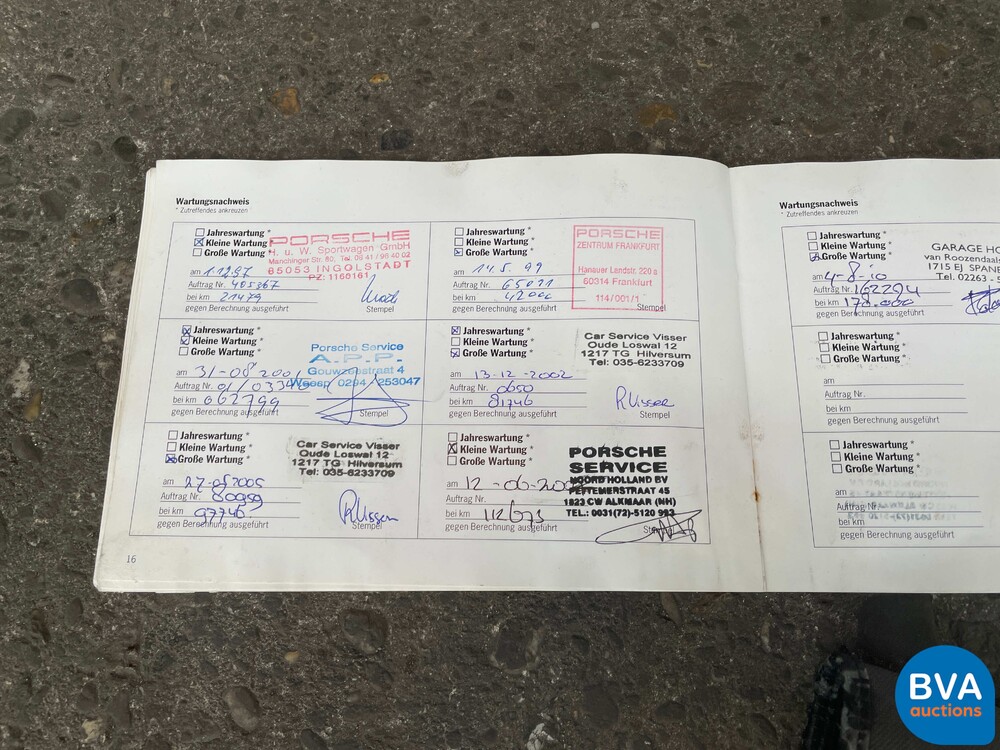 Wartungsnachweis
* Zutreffendes ankreuzen
Jahreswartung *
Kleine Wartung *
Große Wartung *
am 1.12.97
Auftrag Nr. 405367
bei km 21479
gegen Berechnung ausgeführt
PORSCHE
H. u. W. Sportwagen GmbH
Manchinger Str. 80, Tel. 08 41 / 96 40 02
85053 INGOLSTADT
PZ: 1160161
Stempel
Jahreswartung *
Kleine Wartung *
Große Wartung *
am 14.5.99
Auftrag Nr. 65021
bei km 42000
gegen Berechnung ausgeführt
PORSCHE
ZENTRUM FRANKFURT
Hanauer Landstr. 220 a
60314 Frankfurt
114/001/1
Stempel
Jahreswartung *
Kleine Wartung *
Große Wartung *
am 31-08-2001
Auftrag Nr. 01/
bei km 062799
gegen Berechnung ausgeführt
Porsche Service
A.P.P.
Gouwzeestraat 4
Weesp 0294 253047
Stempel
Jahreswartung *
Kleine Wartung *
Große Wartung *
am 13-12-2002
Auftrag Nr. 0650
bei km 81746
gegen Berechnung ausgeführt
Car Service Visser
Oude Loswal 12
1217 TG Hilversum
Tel: 035-6233709
RVisser
Stempel
Jahreswartung *
Kleine Wartung *
Große Wartung *
am
Auftrag Nr. 80959
bei km 97746
gegen Berechnung ausgeführt
Car Service Visser
Oude Loswal 12
1217 TG Hilversum
Tel: 035-6233709
RVisser
Stempel
Jahreswartung *
Kleine Wartung *
Große Wartung *
am 12-06-
Auftrag Nr.
bei km 112673
gegen Berechnung ausgeführt
PORSCHE
SERVICE
NOORD HOLLAND BV
PETTEMERSTRAAT 45
1823 CW ALKMAAR (NH)
TEL.: 0031(72)-5120 993
16
Wartungsnachweis
* Zutreffendes ankreuzen
Jahreswartung *
Kleine Wartung *
Große Wartung *
am 4-8-10
Auftrag Nr. 162294
bei km 178.000
gegen Berechnung ausgeführt
GARAGE HO
van Roozendaals
1715 EJ SPAN
Tel. 02263 - 5
Jahreswartung *
Kleine Wartung *
Große Wartung *
am
Auftrag Nr.
bei km
gegen Berechnung ausgeführt
Jahreswartung *
Kleine Wartung *
Große Wartung *
am
Auftrag Nr.
bei km
gegen Berechnung ausgeführt
BVA
auctions